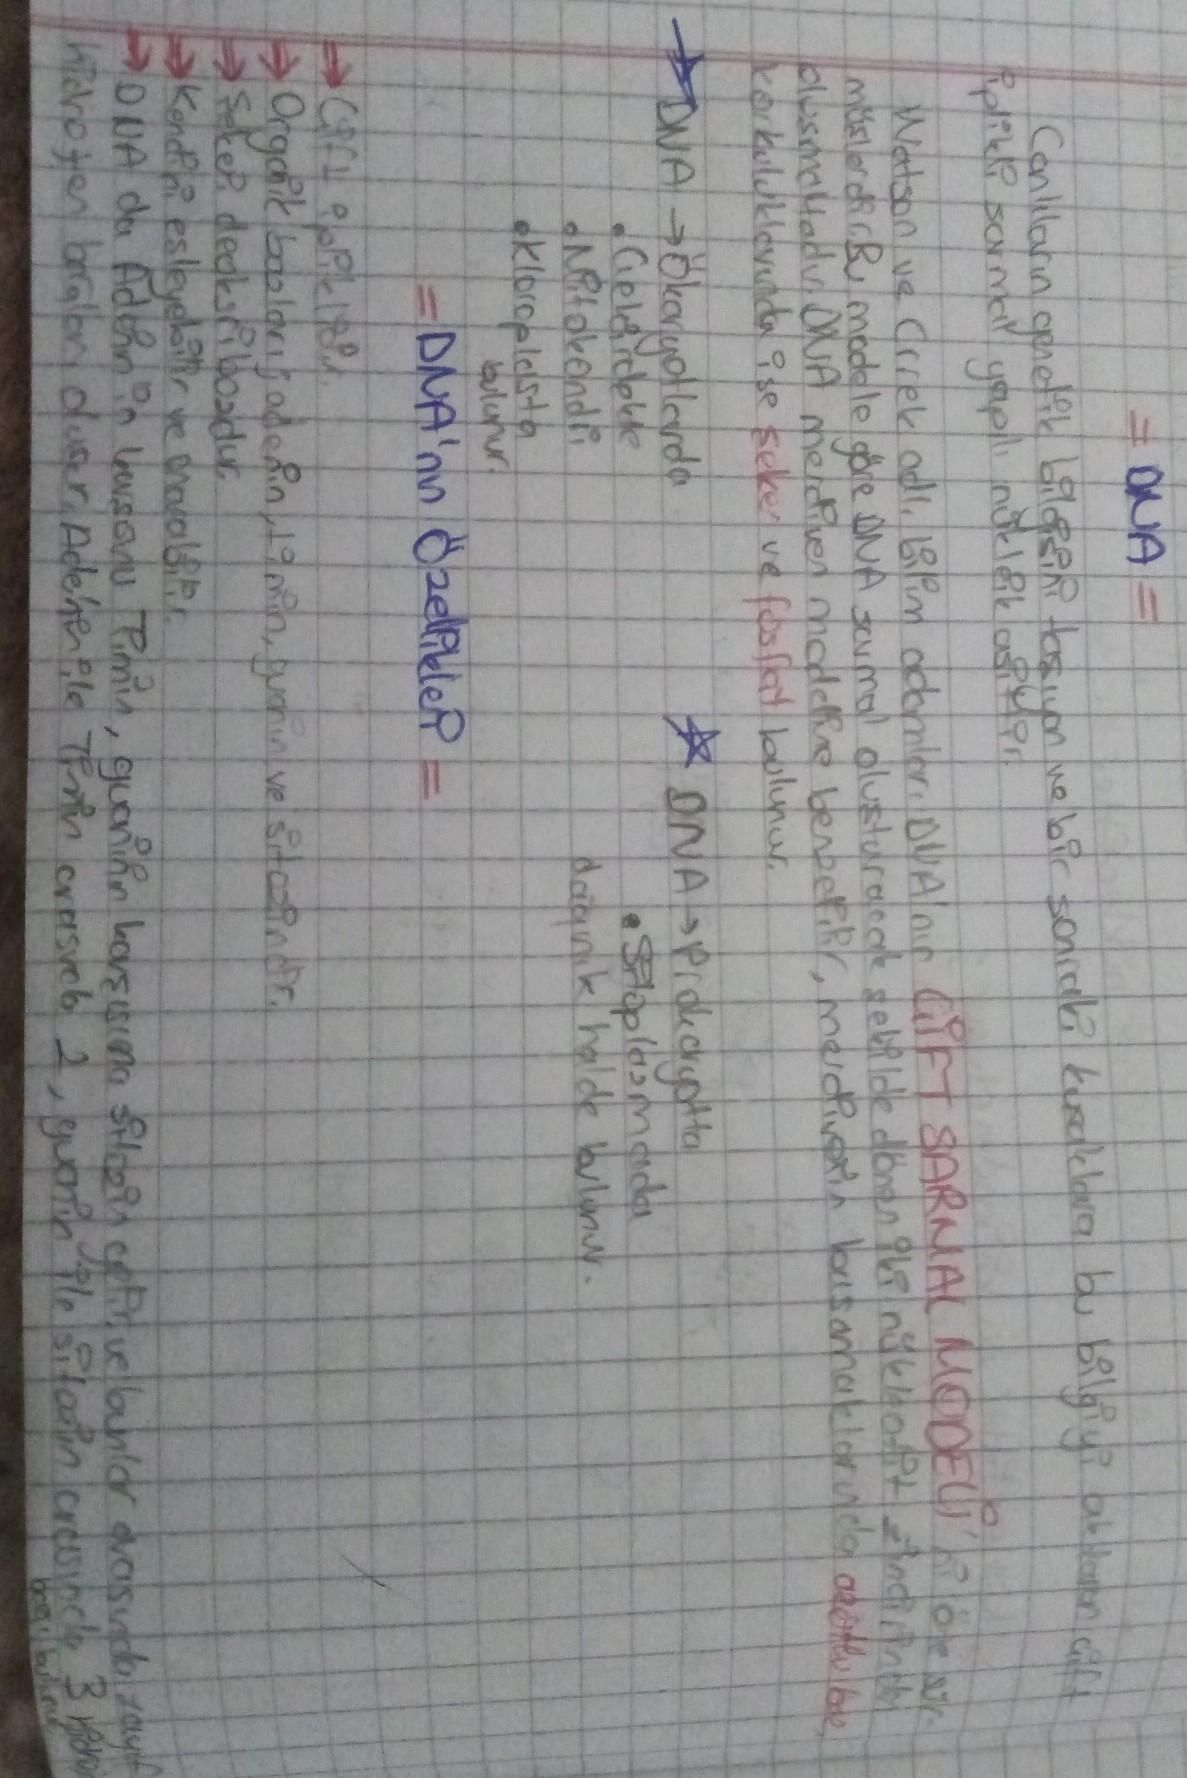 = DNA =
Canlıların genetik bilgisini taşıyan ve bir sonraki kuşaklara bu bilgiyi aktaran çift
iplikli sarmal yapılı nükleik asittir.
Watson ve Crick adlı bilim adamları DNA'nın ÇİFT SARMAL MODELİ'ni öne sür-
müşlerdir. Bu modele göre DNA sarmal oluşturacak şekilde dönen iki nükleotit zincirinden
oluşmaktadır. DNA merdiven modeline benzetilir, merdivenin basamaklarında azotlu baz,
korkuluklarında ise şeker ve fosfat bulunur.
→ DNA → Ökaryotlarda
• Çekirdekte
• Mitokondri
• Kloroplasta
bulunur.
☆ DNA → Prokaryotta
• Sitoplazmada
dağınık halde bulunur.
= DNA'nın Özellikleri =
→ Çift ipliklidir.
→ Organik bazları; adenin, timin, guanin ve sitozindir.
→ Şekeri deoksiribozdur.
→ Kendini eşleyebilir ve onarabilir.
→ DNA da Adenin'in karşısına Timin, guaninin karşısına sitozin gelir, ve bunlar arasında zayıf
hidrojen bağları bulunur. Adenin ile Timin arasında 2, guanin ile sitozin arasında 3 hidrojen
bağı bulunur.